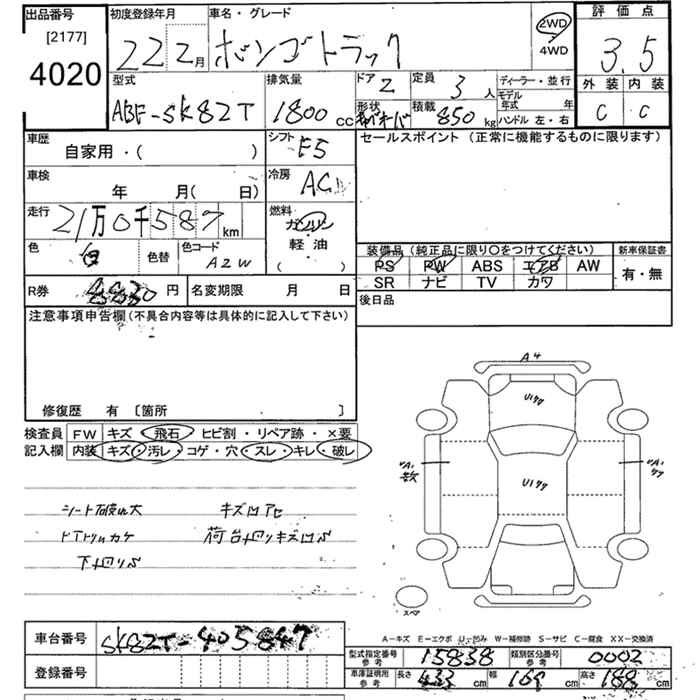 出品番号 [2177] 4020
初度登録年月 22 2月
車名・グレード ボンゴトラック
2WD 4WD
評価点 3.5
外装 C 内装 C
型式 ABF-SK82T
排気量 1800 CC
ドア 2
形状
定員 3人
積載 850 kg
ディーラー・並行
モデル年式 年
ハンドル 左・右
車歴 自家用・( )
車検 年 月( 日)
走行 21万0千587km
色 白 色替 色コード A2W
シフト F5
冷房 AC
燃料 ガソリン 軽油 ( )
セールスポイント (正常に機能するものに限ります)
装備品 (純正品に限り○をつけてください)
PS PW ABS エアB AW
SR ナビ TV カワ
新車保証書 有・無
R券 8830円 名変期限 月 日
後日品
注意事項申告欄 (不具合内容等は具体的に記入して下さい)
修復歴 有 〔箇所 〕
検査員記入欄
FW キズ・飛石・ヒビ割・リペア跡・×要
内装 キズ・汚レ・コゲ・穴・スレ・キレ・破レ
シート破れ大
キズ凹アヒ
下廻りS
荷台廻りキズ凹S
A4
U177
U177
スペア
A-キズ E-エクボ U-凹み W-補修跡 S-サビ C-腐食 XX-交換済
車台番号 SK82T-405847
登録番号
型式指定番号参考 15838 類別区分番号参考 0002
車庫証明用参考 長さ 433cm 幅 169cm 高さ 188cm